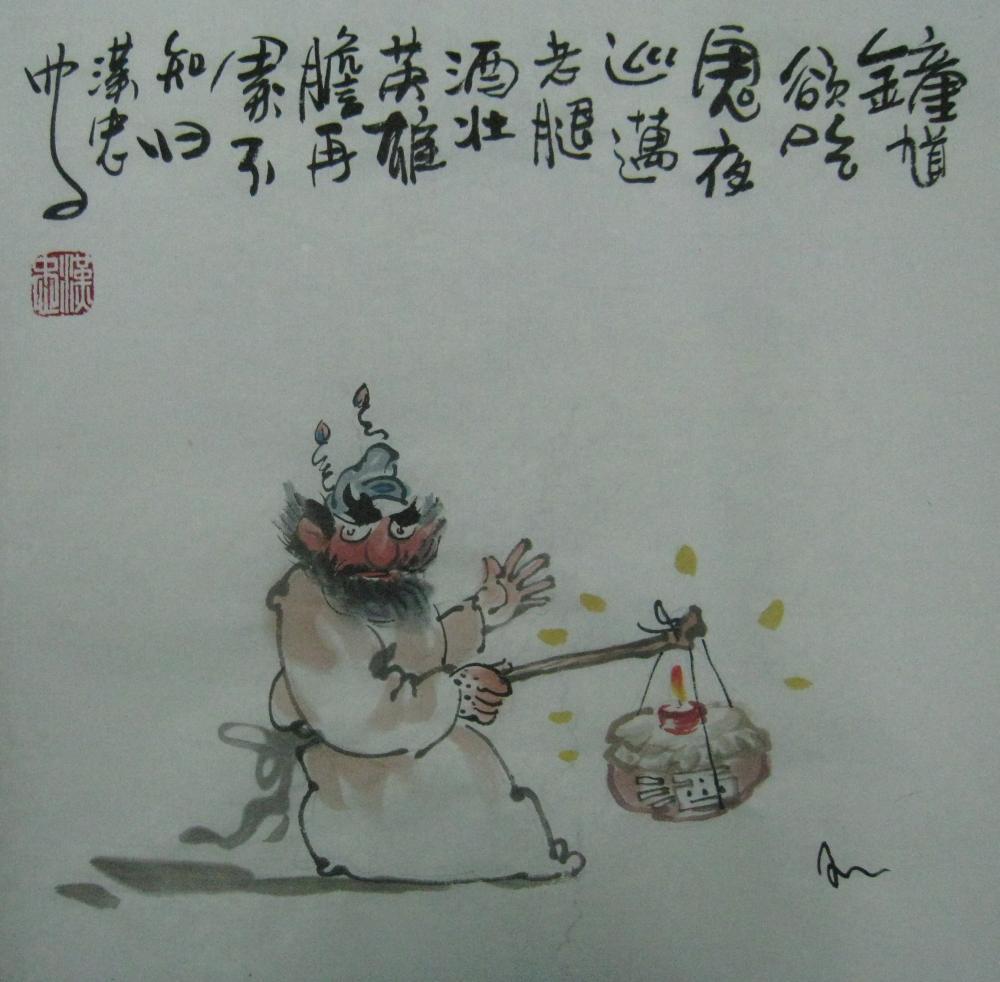 鐘馗
欲吃
鬼夜
巡邁
老腿
酒壮
英雄
膽再
累不
知归
漢忠
漢忠